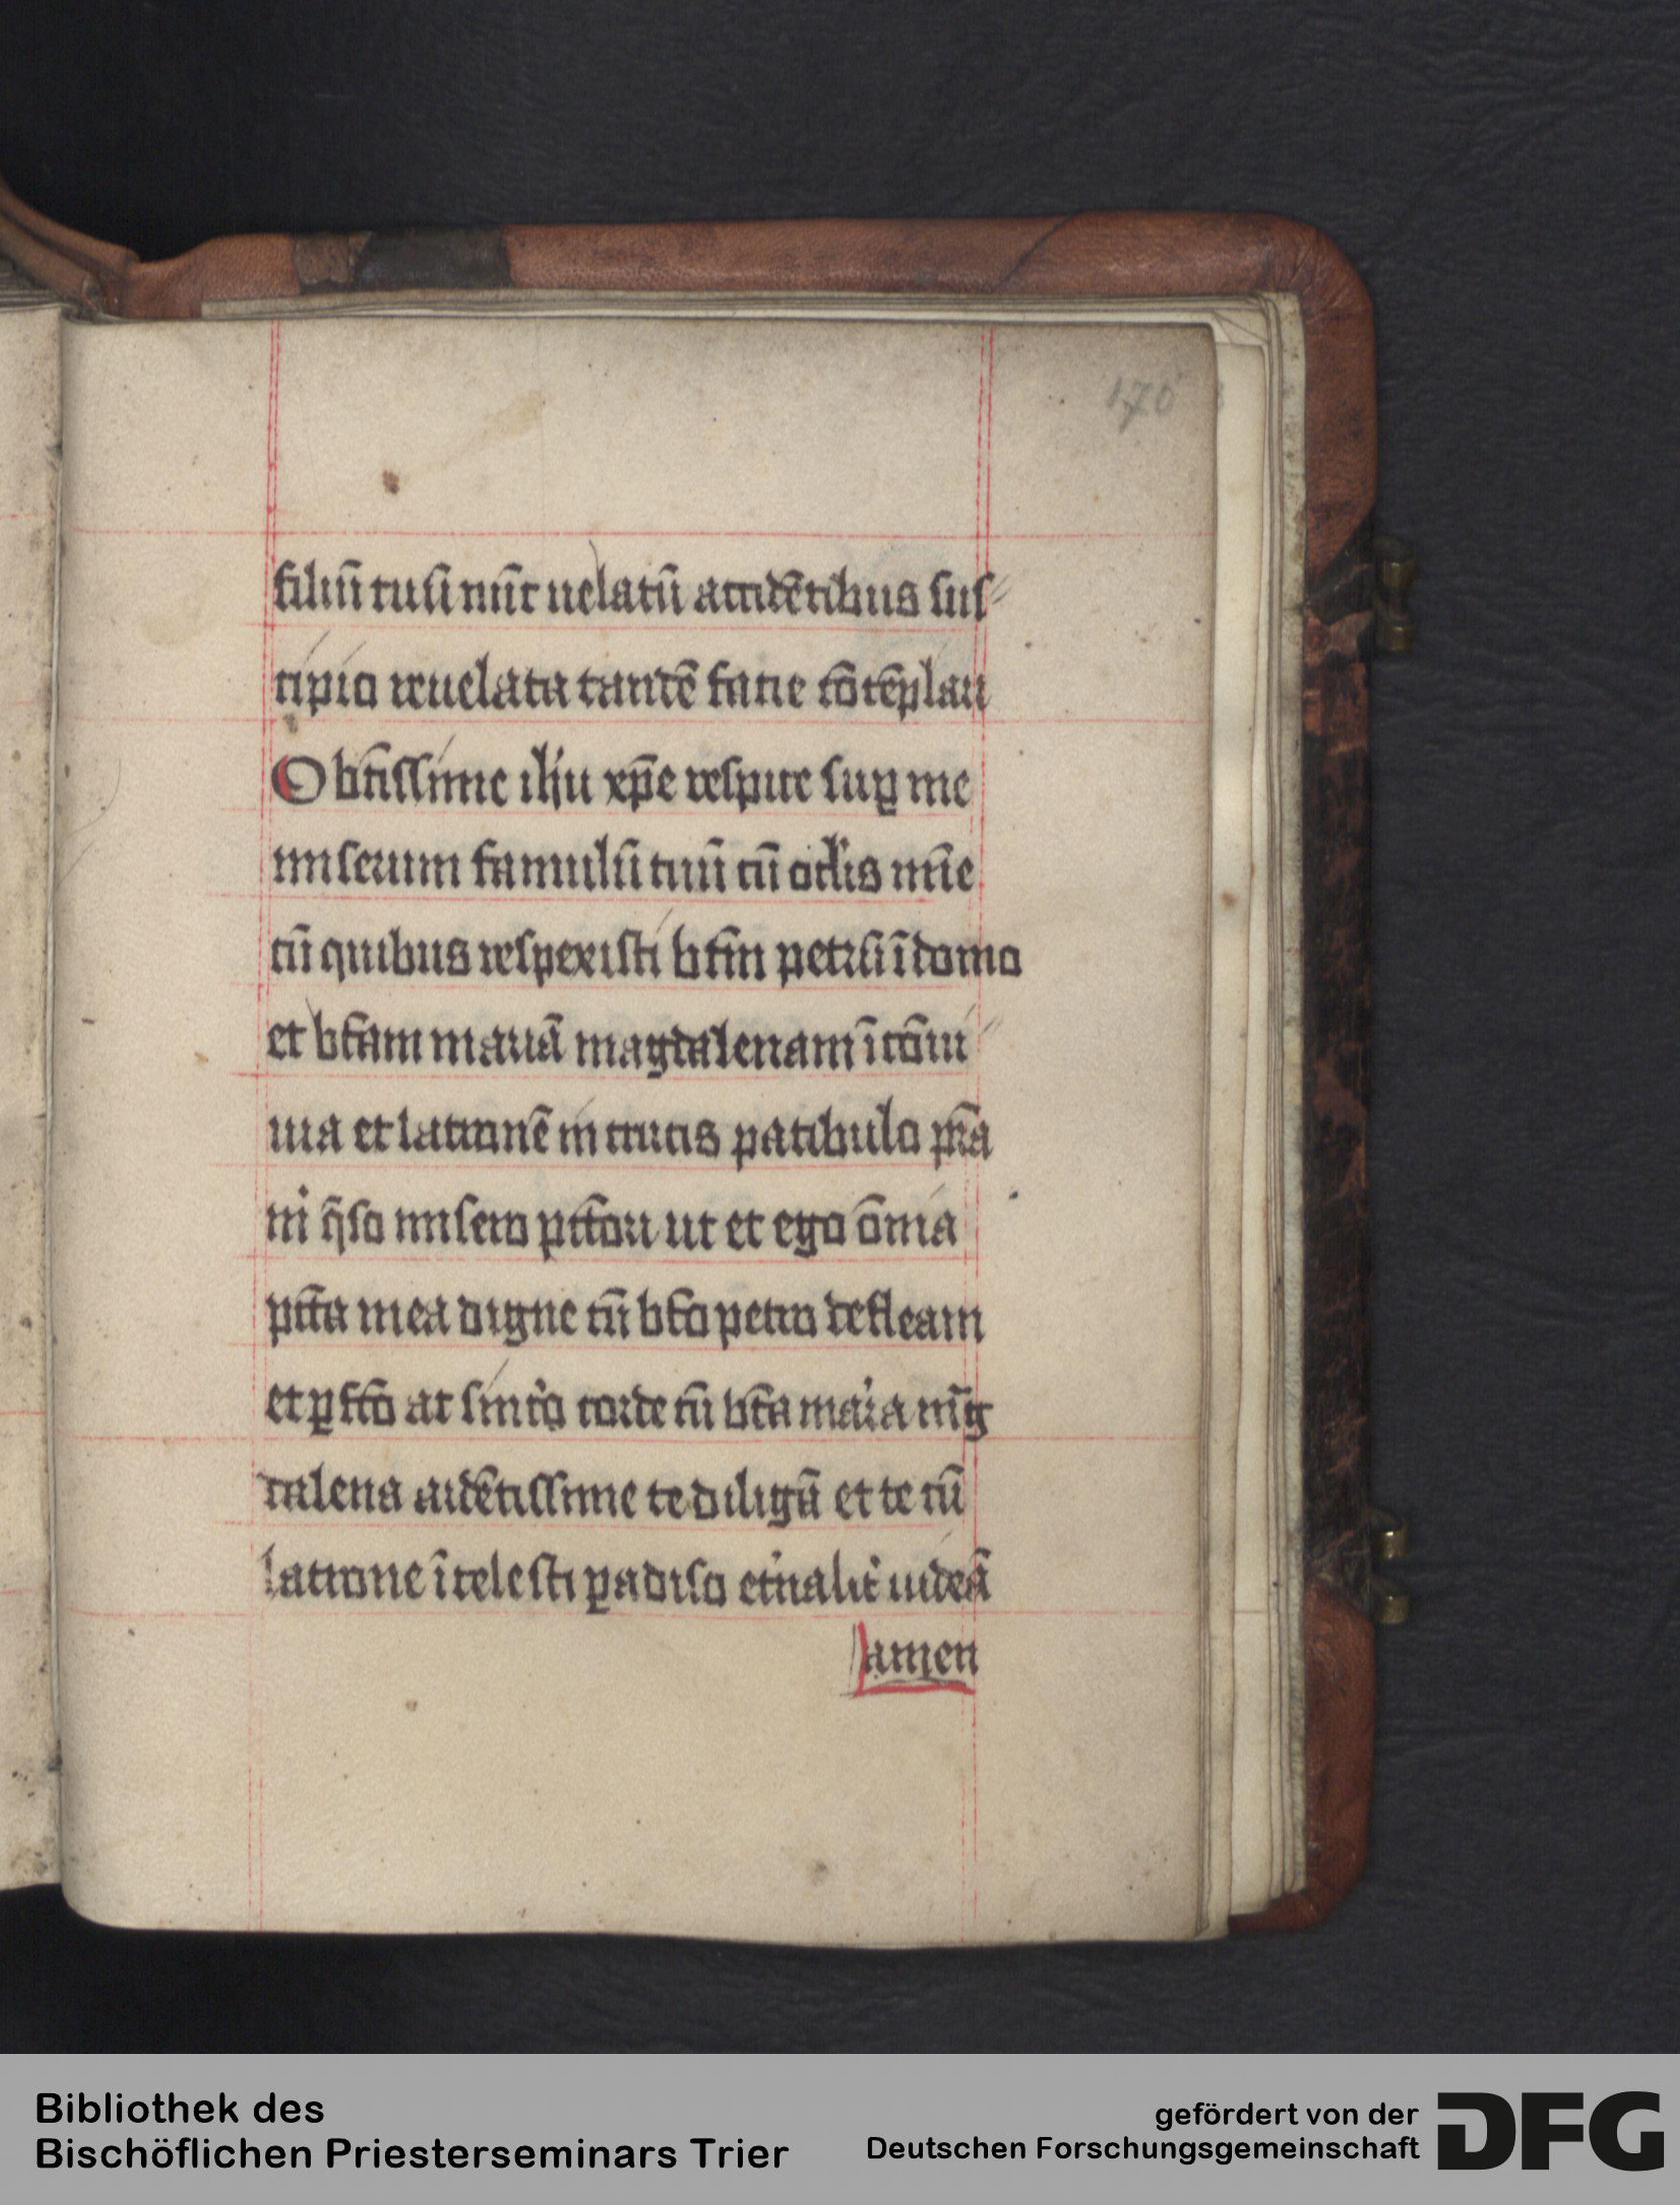 170
filiū tuū nūc uelatū accidētibus sus-
cipio reuelata tandē facie cōtēplari
O bn̄issime ihu xp̄e respice suꝑ me
miserum famulū tuū cū oclis mīe
cū quibus respexisti btm̄ petrū ī domo
et btām mariā magdalenam ī cōui
uia et latronē in crucis patibulo p̄sta
m̄ q̄so misero pctōri ut et ego ōmia
pctā mea digne cū btō petro defleam
et ꝑfcō ac sincō corde cū btā maria mag
dalena ardētissime te diligā et te cū
latrone ī celesti ꝑadiso et̓nalit̓ uideā
amen
Bibliothek des
Bischöflichen Priesterseminars Trier
gefördert von der
Deutschen Forschungsgemeinschaft
DFG